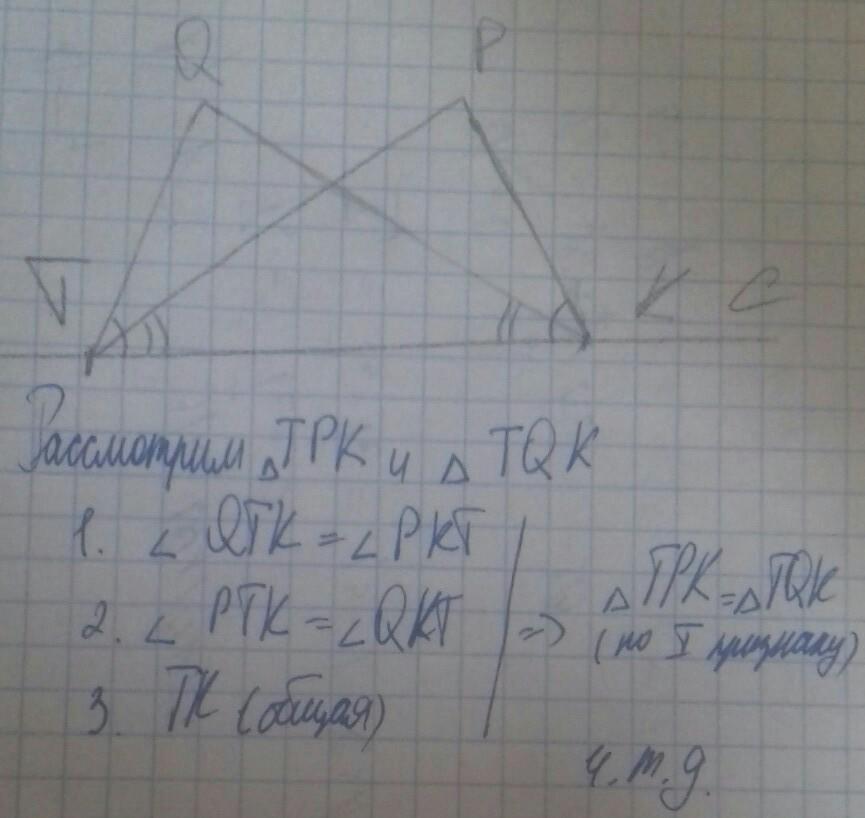 Q P
T K C
Рассмотрим △TPK и △ TQK
1. ∠ QTK = ∠ PKT
2. ∠ PTK = ∠QKT
3. TK (общая)
=> △TPK = △TQK
(по I признаку)
ч.т.д.